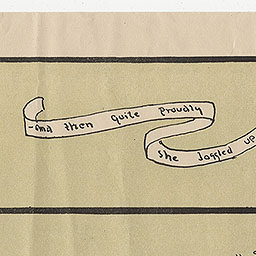 -and then quite proudly
she joggled up